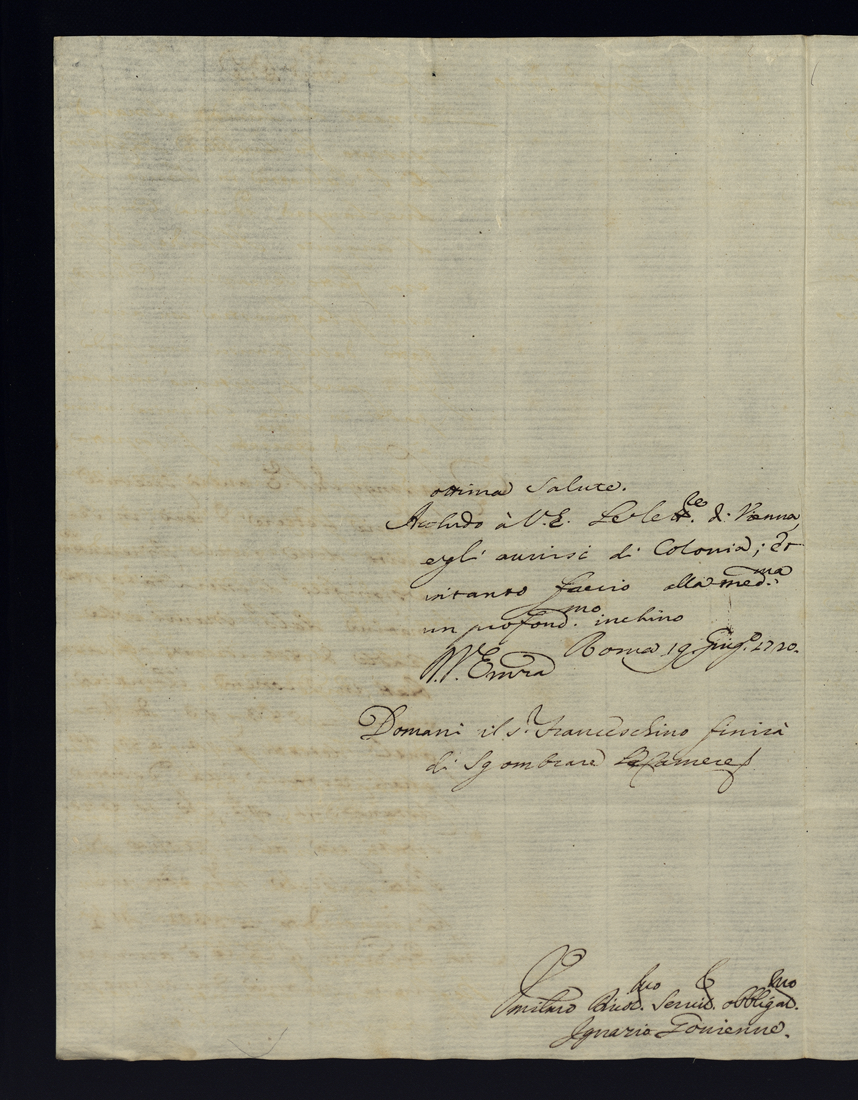 ottima salute.
Accludo à V.E. le lett.re di Vienna,
egli avvisi di Colonia; et
intanto faccio alla med.ma
un profond.mo inchino
V.E. Roma 19 Giug.o 1720.
Domani il s.r Franceschino finirà
di sgombrare le camere
Umiliss.o Divot. Servid. obbligat.mo
Ignazio